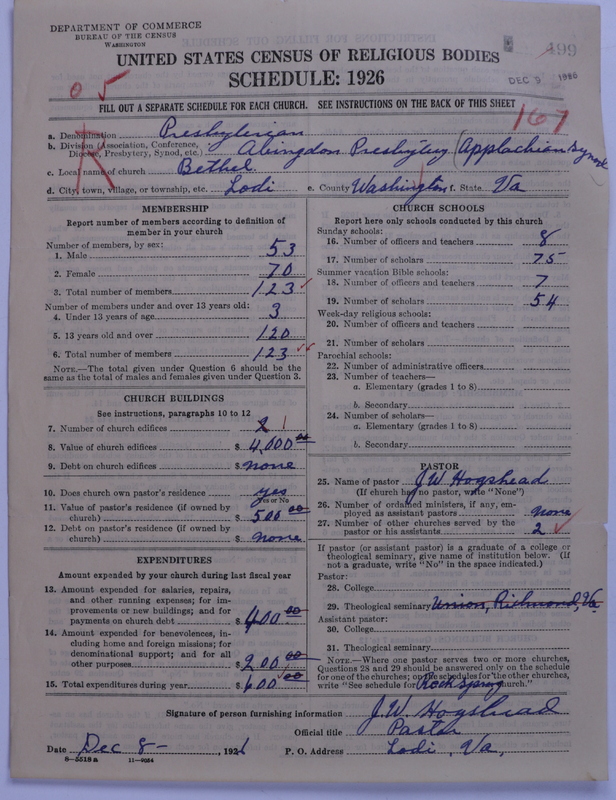 DEPARTMENT OF COMMERCE
BUREAU OF THE CENSUS
WASHINGTON
499
UNITED STATES CENSUS OF RELIGIOUS BODIES
SCHEDULE: 1926
DEC 9 1926
05
FILL OUT A SEPARATE SCHEDULE FOR EACH CHURCH. SEE INSTRUCTIONS ON THE BACK OF THIS SHEET
167
R
a. Denomination Presbyterian
b. Division (Association, Conference, Diocese, Presbytery, Synod, etc.) Abingdon Presbytery (Applachian Synod
c. Local name of church Bethel
d. City, town, village, or township, etc. Lodi e. County Washington f. State Va
MEMBERSHIP
Report number of members according to definition of
member in your church
Number of members, by sex:
1. Male 53
2. Female 70
3. Total number of members 123
Number of members under and over 13 years old:
4. Under 13 years of age 3
5. 13 years old and over 120
6. Total number of members 123
NOTE.—The total given under Question 6 should be the
same as the total of males and females given under Question 3.
CHURCH BUILDINGS
See instructions, paragraphs 10 to 12
7. Number of church edifices 2 1
8. Value of church edifices $ 4,000 00
9. Debt on church edifices $ none
10. Does church own pastor's residence yes
Yes or No
11. Value of pastor's residence (if owned by
church) $ 500 00
12. Debt on pastor's residence (if owned by
church) $ none
EXPENDITURES
Amount expended by your church during last fiscal year
13. Amount expended for salaries, repairs,
and other running expenses; for im-
provements or new buildings; and for
payments on church debt $ 400 00
14. Amount expended for benevolences, in-
cluding home and foreign missions; for
denominational support; and for all
other purposes $ 200 00
15. Total expenditures during year $ 600 00
CHURCH SCHOOLS
Report here only schools conducted by this church
Sunday schools:
16. Number of officers and teachers 8
17. Number of scholars 75
Summer vacation Bible schools:
18. Number of officers and teachers 7
19. Number of scholars 54
Week-day religious schools:
20. Number of officers and teachers
21. Number of scholars
Parochial schools:
22. Number of administrative officers
23. Number of teachers—
a. Elementary (grades 1 to 8)
b. Secondary
24. Number of scholars—
a. Elementary (grades 1 to 8)
b. Secondary
PASTOR
25. Name of pastor J. W. Hogshead
(If church has no pastor, write "None")
26. Number of ordained ministers, if any, em-
ployed as assistant pastors none
27. Number of other churches served by the
pastor or his assistants 2
If pastor (or assistant pastor) is a graduate of a college or
theological seminary, give name of institution below. (If
not a graduate, write "No" in the space indicated.)
Pastor:
28. College
29. Theological seminary Union, Richmond, Va
Assistant pastor:
30. College
31. Theological seminary
NOTE.—Where one pastor serves two or more churches,
Questions 28 and 29 should be answered only on the schedule
for one of the churches; on the schedules for the other churches,
write "See schedule for Rock Spring church."
Signature of person furnishing information J. W. Hogshead
Official title Pastor
Date Dec 8 - , 1926 P. O. Address Lodi, Va,
8—5518 a 11—9054